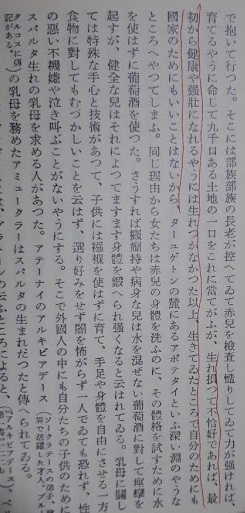 で抱いて行つた。そこには部族部族の長老が控へてゐて赤兒を檢査し憶りしてゐて力が强ければ、
育てるやうに命じて九千ある土地の一口をこれに當てがふが、生れ損つて恰好であれば、最
初から健康や强壯になれるやうには生れつかなかつた以上、生きてゐたところで自分のためにも
國家のためにもいいことはないから、ターユゲトンの麓にあるアポテタイといふ深い淵のやうな
ところへやつてしまふ。同じ理由から女たちは赤兒の身體を洗ふのに、その體格を試すために水
を使はずに葡萄酒を使つた。さうすれば癲癇持や病身な兒は水を混ぜない葡萄酒に對して痙攣を
起すが、健全な兒はそれによつてますます身體を鍛へられ强くなると云はれてゐる。乳母に關し
ては特殊な手心と技術があつて、子供には襁褓を使はずに育て、手足や身體を自由にさせる一方
食物に對してもむづかしいことを云はず、選り好みをせず闇を怖がらず一人でゐても恐れず、性
の惡い不機嫌や泣き叫ぶことがないやうにする。そこで外國人の中にも自分たちの子供のために
スパルタ生れの乳母を求める人があつた。アテーナイのアルキビアデース(ソークラテースの弟子、
界で活躍した才人。プルー
タルコスに傳
記がある。)の乳母を務めたアミュークラーはスパルタの生まれだつたと傳へられてゐる。